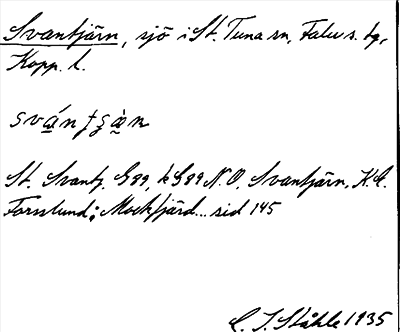 Svantjärn, sjö i St. Tuna sn, Falu s. tg,
Kopp. l.
svántʂà̠n
St. Svantj. G99, k G99 N.O. Svantjärn, K.E.
Forsslund: Mockfjärd... sid 145
C. I. Ståhle 1935